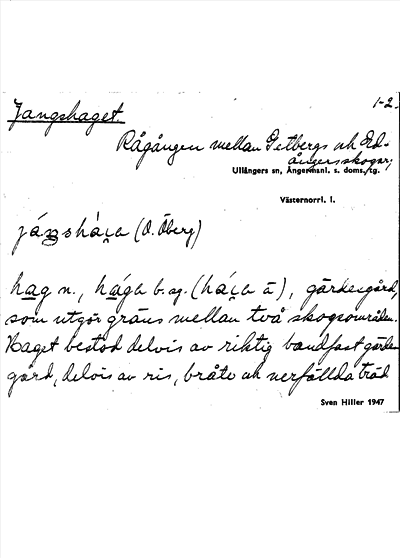 Jangshaget. 1-2.
Rågången mellan Getbergs och Ed-
ångersskogar,
Ullångers sn, Ångermanl. s. doms./tg.
Västernorrl. l.
(O. Öberg)
hag n., hága b. sg. (háća ā), gärdesgård,
som utgör gräns mellan två skogsområden.
Haget bestod delvis av riktig bandfast gärdes-
gård, delvis av ris, bråte och nerfällda träd
Sven Hiller 1947